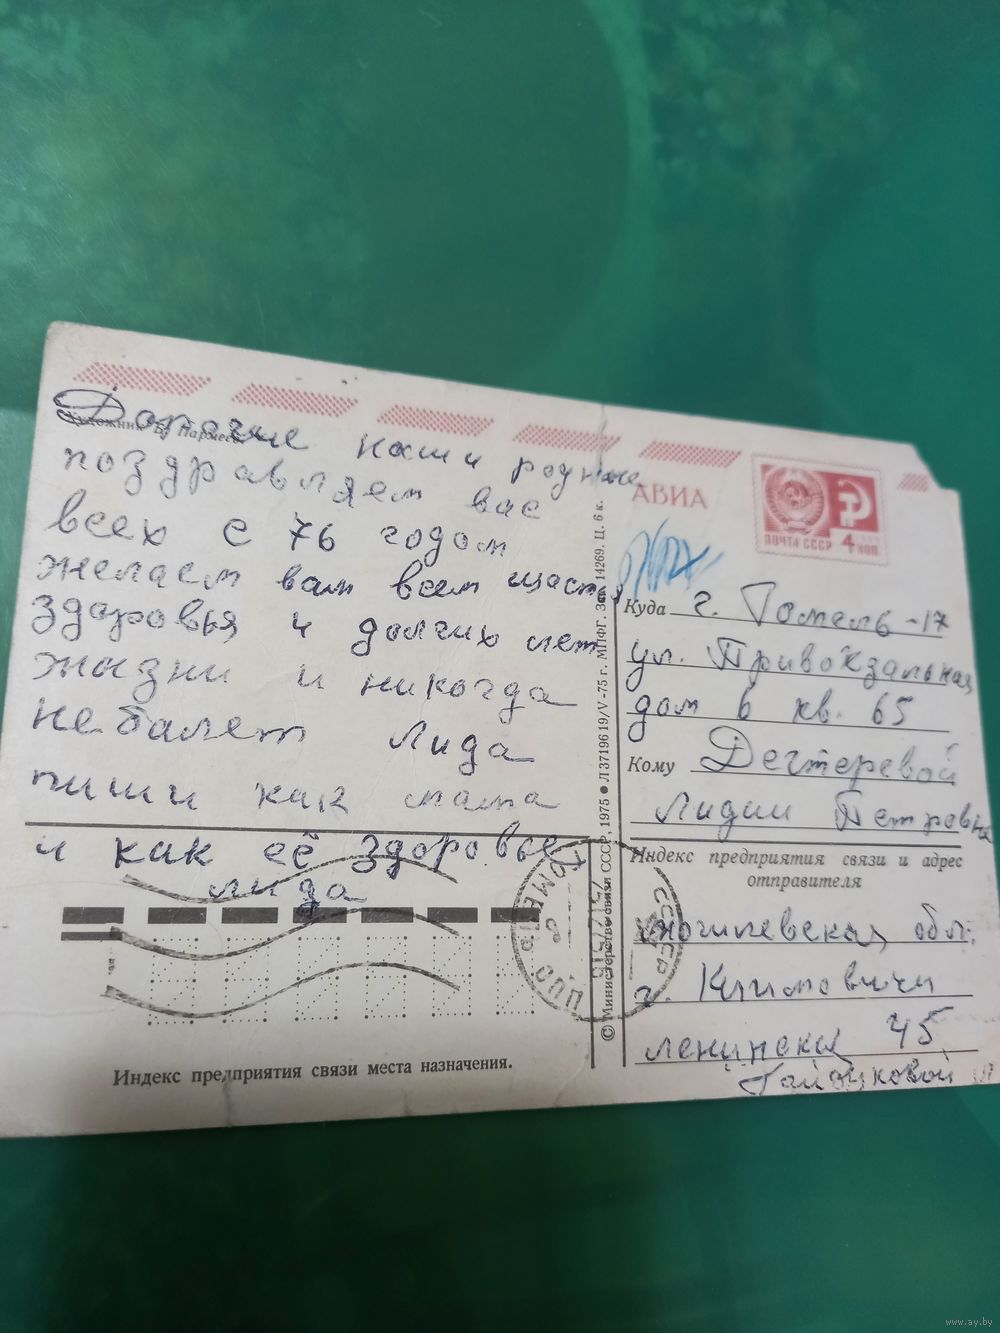 Дорогие наши родные
поздравляем вас
всех с 76 годом
желаем вам всем щастья
здоровья и долгих лет
жызни и никогда
не балет Лида
пиши как мама
и как её здоровье
лида
Индекс предприятия связи места назначения.
© Министерство связи СССР, 1975 ● Л 37196 19/V-75 г. МПФГ. Зак. 14269. Ц. 6 к.
АВИА
ПОЧТА СССР 4 КОП
Куда г. Гомель-17
ул. Привокзальная
дом 6 кв. 65
Кому Дегтеревой
Лидии Петровне
Индекс предприятия связи и адрес
отправителя
могилевская обл.
г. Климовичи
ленинская 45
ГОМЕЛЬ
СССР
www.ay.by